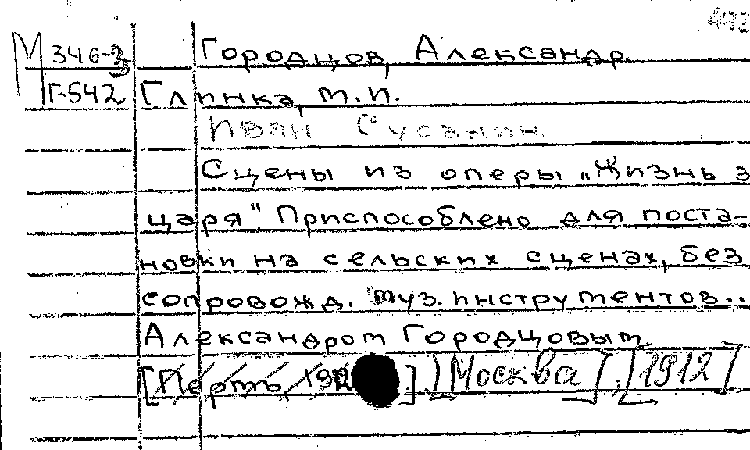 М 346-3 Городцов, Александр.
Г-542 Глинка, М.И.
Иван Сусанин
Сцены из оперы „Жизнь з
царя" Приспособлено для поста-
новки на сельских сценах, без
сопровожд. муз. инструментов..
Александром Городцовым
[Пермь, 191 ]. [Москва], [1912]